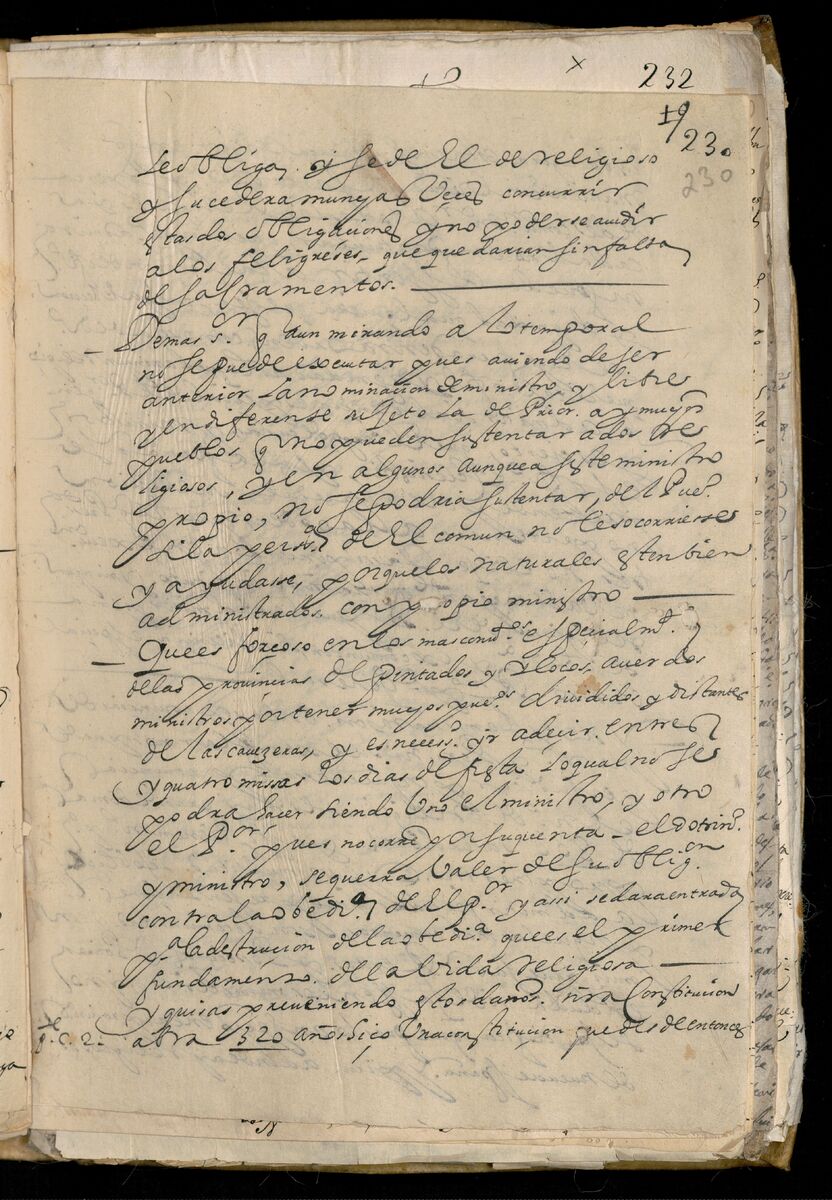 232
19
230
230
le obliga, y se de El de religioso
y sucedera munchas Veces concurrir
estas dos obligaciones y no poderse acudir
a los feligreses, que quedarian sin falta
de sacramentos.
Demas s.or q aun mirando a lo temporal
no se puede executar pues aviendo de ser
anterior la nominacion de ministro, y libre
y endiferense sujeto la de Prior. ay muchos
pueblos q no pueden sustentar a dos re
ligiosos, y en algunos aunque a seste ministro
propio, no se podria sustentar, del Pue.o
si la persa. de El comun no le socorriesse
y ayudasse, porque los naturales esten bien
administrados con propio ministro
Que es forçoso en los mas conv.tos especialm.te
de las provincias de pintados y Ylocos, aver dos
ministros por tener muchos pue.os divididos y distantes
de las cavezeras, y es necess.o yr a decir. entres
y quatro missas los dias de fiesta lo qual no se
podra hacer siendo Uno el ministro, y otro
el P.or pues no corre por su quenta el dotrin.o
y ministro, se querra Valer de su oblig.on
contra la obedi.a de El P.or y assi se dara entrada
p.a la destrucion de la obedi.a que es el primer
fundamento. de la vida religiosa
y quisas previniendo estos daños. nra Constitucion
abra 320 años hico Una constitucion que desde entonces
c. 2.